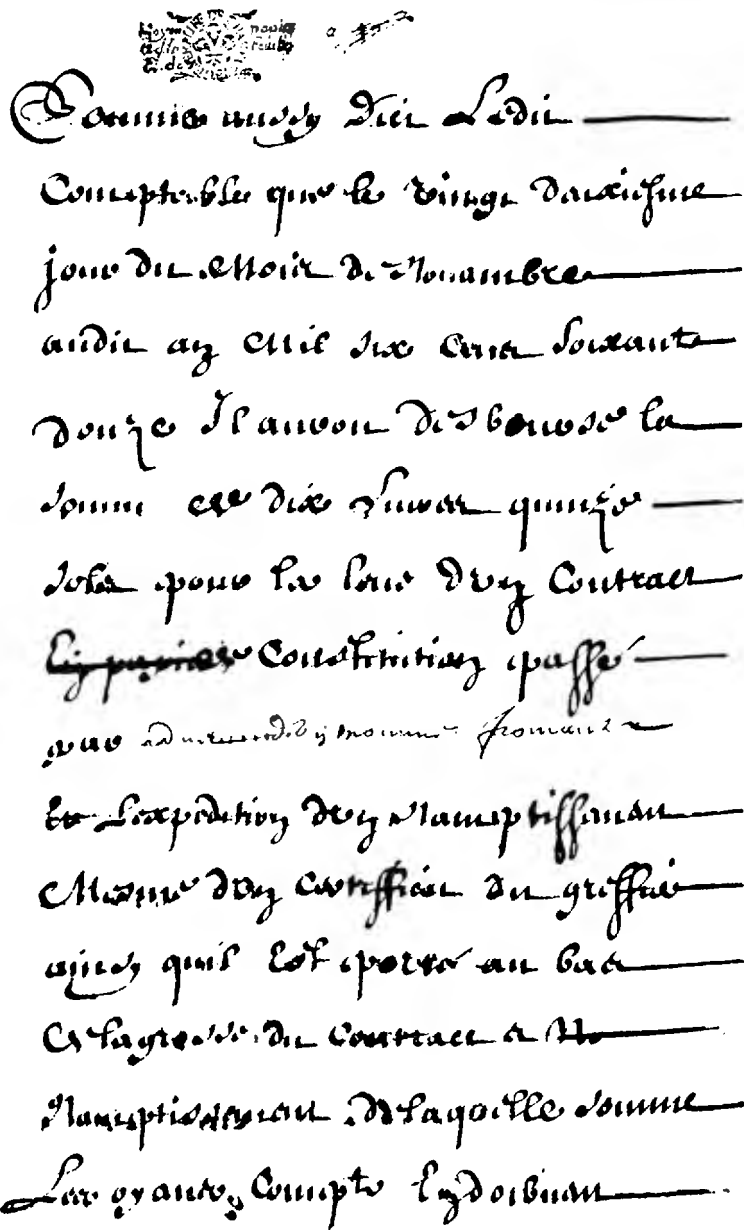 Comme aussy dict Ledit
Comptable que le vingt deuxiesme
jour du Mois de Nouambre
audit an Mil six cens soixante
douze Il auroit desbource la
somme de dix Liures quinze
solz pour les leue d'un Contract
En papier Constitution passé
par
Et Lexpedition d'un Namptissement
Mesme d'un certifficat du greffier
ainsy quil Est porté au bas
de la grosse du Contract et
Namptissement de laquelle somme
Les oyants Compte Endoibuent